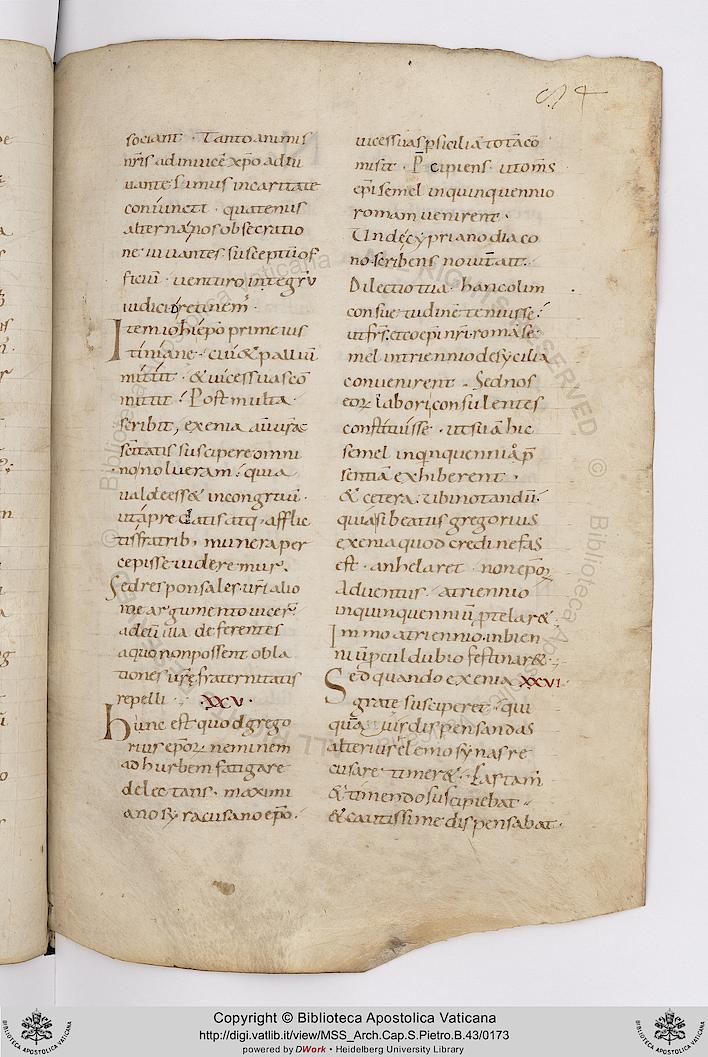 sociant · Tanto animis
nr̄is adinuicē xp̄o adiu
uante simus incaritate
coniuncti · quatenus
alternā pos obsecratio
ne iuuantes susceptū of
ficiū · uenturo integrū
iudici retinem̄
Item ioh̄i ep̄o primę ius
tinianę · cui & palliū
mittit · & uices suas cō
mittit · Post multa
scribit, exenia aū ur̄ae
sc̄itatis suscipere omni
no nolueram · quia
ualde ess& incongruū ·
ut a predatis atq; afflic
tis fratrib; munera per
cepisse uideremur ·
Sed responsales ur̄i alio
me argumento uicer̄
ad eū illa deferentes
a quo non possent obla
tiones ur̄ę fraternitatis
repelli · XXV ·
Hunc est quod grego
rius ep̄or̄ neminem
ad hurbem fatigare
delectans · maximi
ano syracusano ep̄o ·
uices suas p siciliā totā cō
misit · Pcipiens ut om̄s
ep̄i semel in quinquennio
romam uenirent ·
Unde cypriano diaco
no scribens
Dilectio tua · hanc olim
consuetudinē tenuisse ·
ut fr̄s & coep̄i nr̄i romā se
mel in triennio de sycilia
conuenirent · Sed nos
eor̄ labori consulentes
constituisse · ut suā hic
semel in quinquenniū p̄
sentiā exhiberent ·
& cetera · ubi notandū ·
quia si beatus gregorius
exenia quod credi nefas
est · anhelaret · non ep̄or̄
aduentus · a triennio
in quinquenniū ptelar& ·
Immo a triennio in bien
niū pcul dubio festinar& ·
Sed quando exenia XXVI
grate susciperet · qui
quā uis dispensandas
alterius elemosynas re
cusare timer& ·
& timendo suscipiebat ·
& cautissime dispensabat ·
Copyright © Biblioteca Apostolica Vaticana
http://digi.vatlib.it/view/MSS_Arch.Cap.S.Pietro.B.43/0173
powered by DWork • Heidelberg University Library